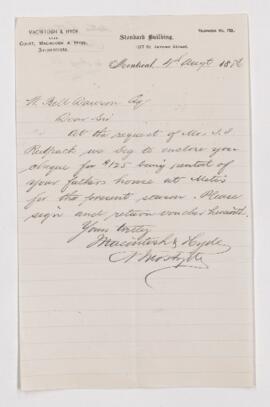 MACINTOSH & HYDE,
COURT, MACINTOSH & HYDE,
Standard Building,
157 St. James Street,
TELEPHONE NO.
Montreal 4th Augt 18
W. Bell Dawson Esq
Dear Sir
At the request of Mr. J. S.
we beg to enclose you
cheque for $125 being rental of
your fathers house at Metis
for the present season. Please
sign and return voucher herewith.
Yours truly
Macintosh & Hyde